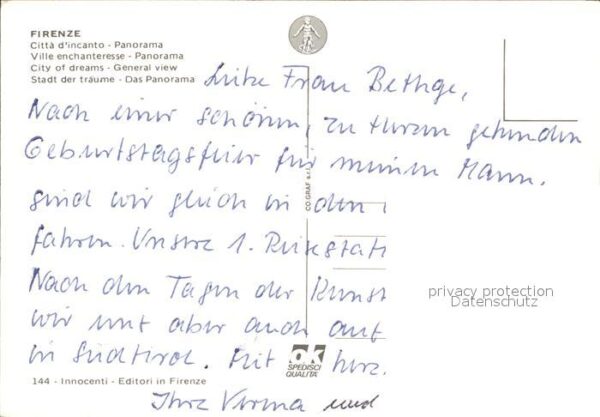 FIRENZE
Città d'incanto - Panorama
Ville enchanteresse - Panorama
City of dreams - General view
Stadt der träume - Das Panorama
Liebe Frau Bethge,
Nach einer schönen, zu Herzen gehenden
Geburtstagsfeier für meinen Mann,
sind wir gleich in den
fahren. Unsere 1. Reisestati
Nach den Tagen der Kunst
wir uns aber auch auf
in Südtirol. Mit herz.
Ihre Verena und
CO.GRAF s.r.l.
privacy protection
Datenschutz
ok
SPEDISCI
QUALITÀ
144 - Innocenti - Editori in Firenze